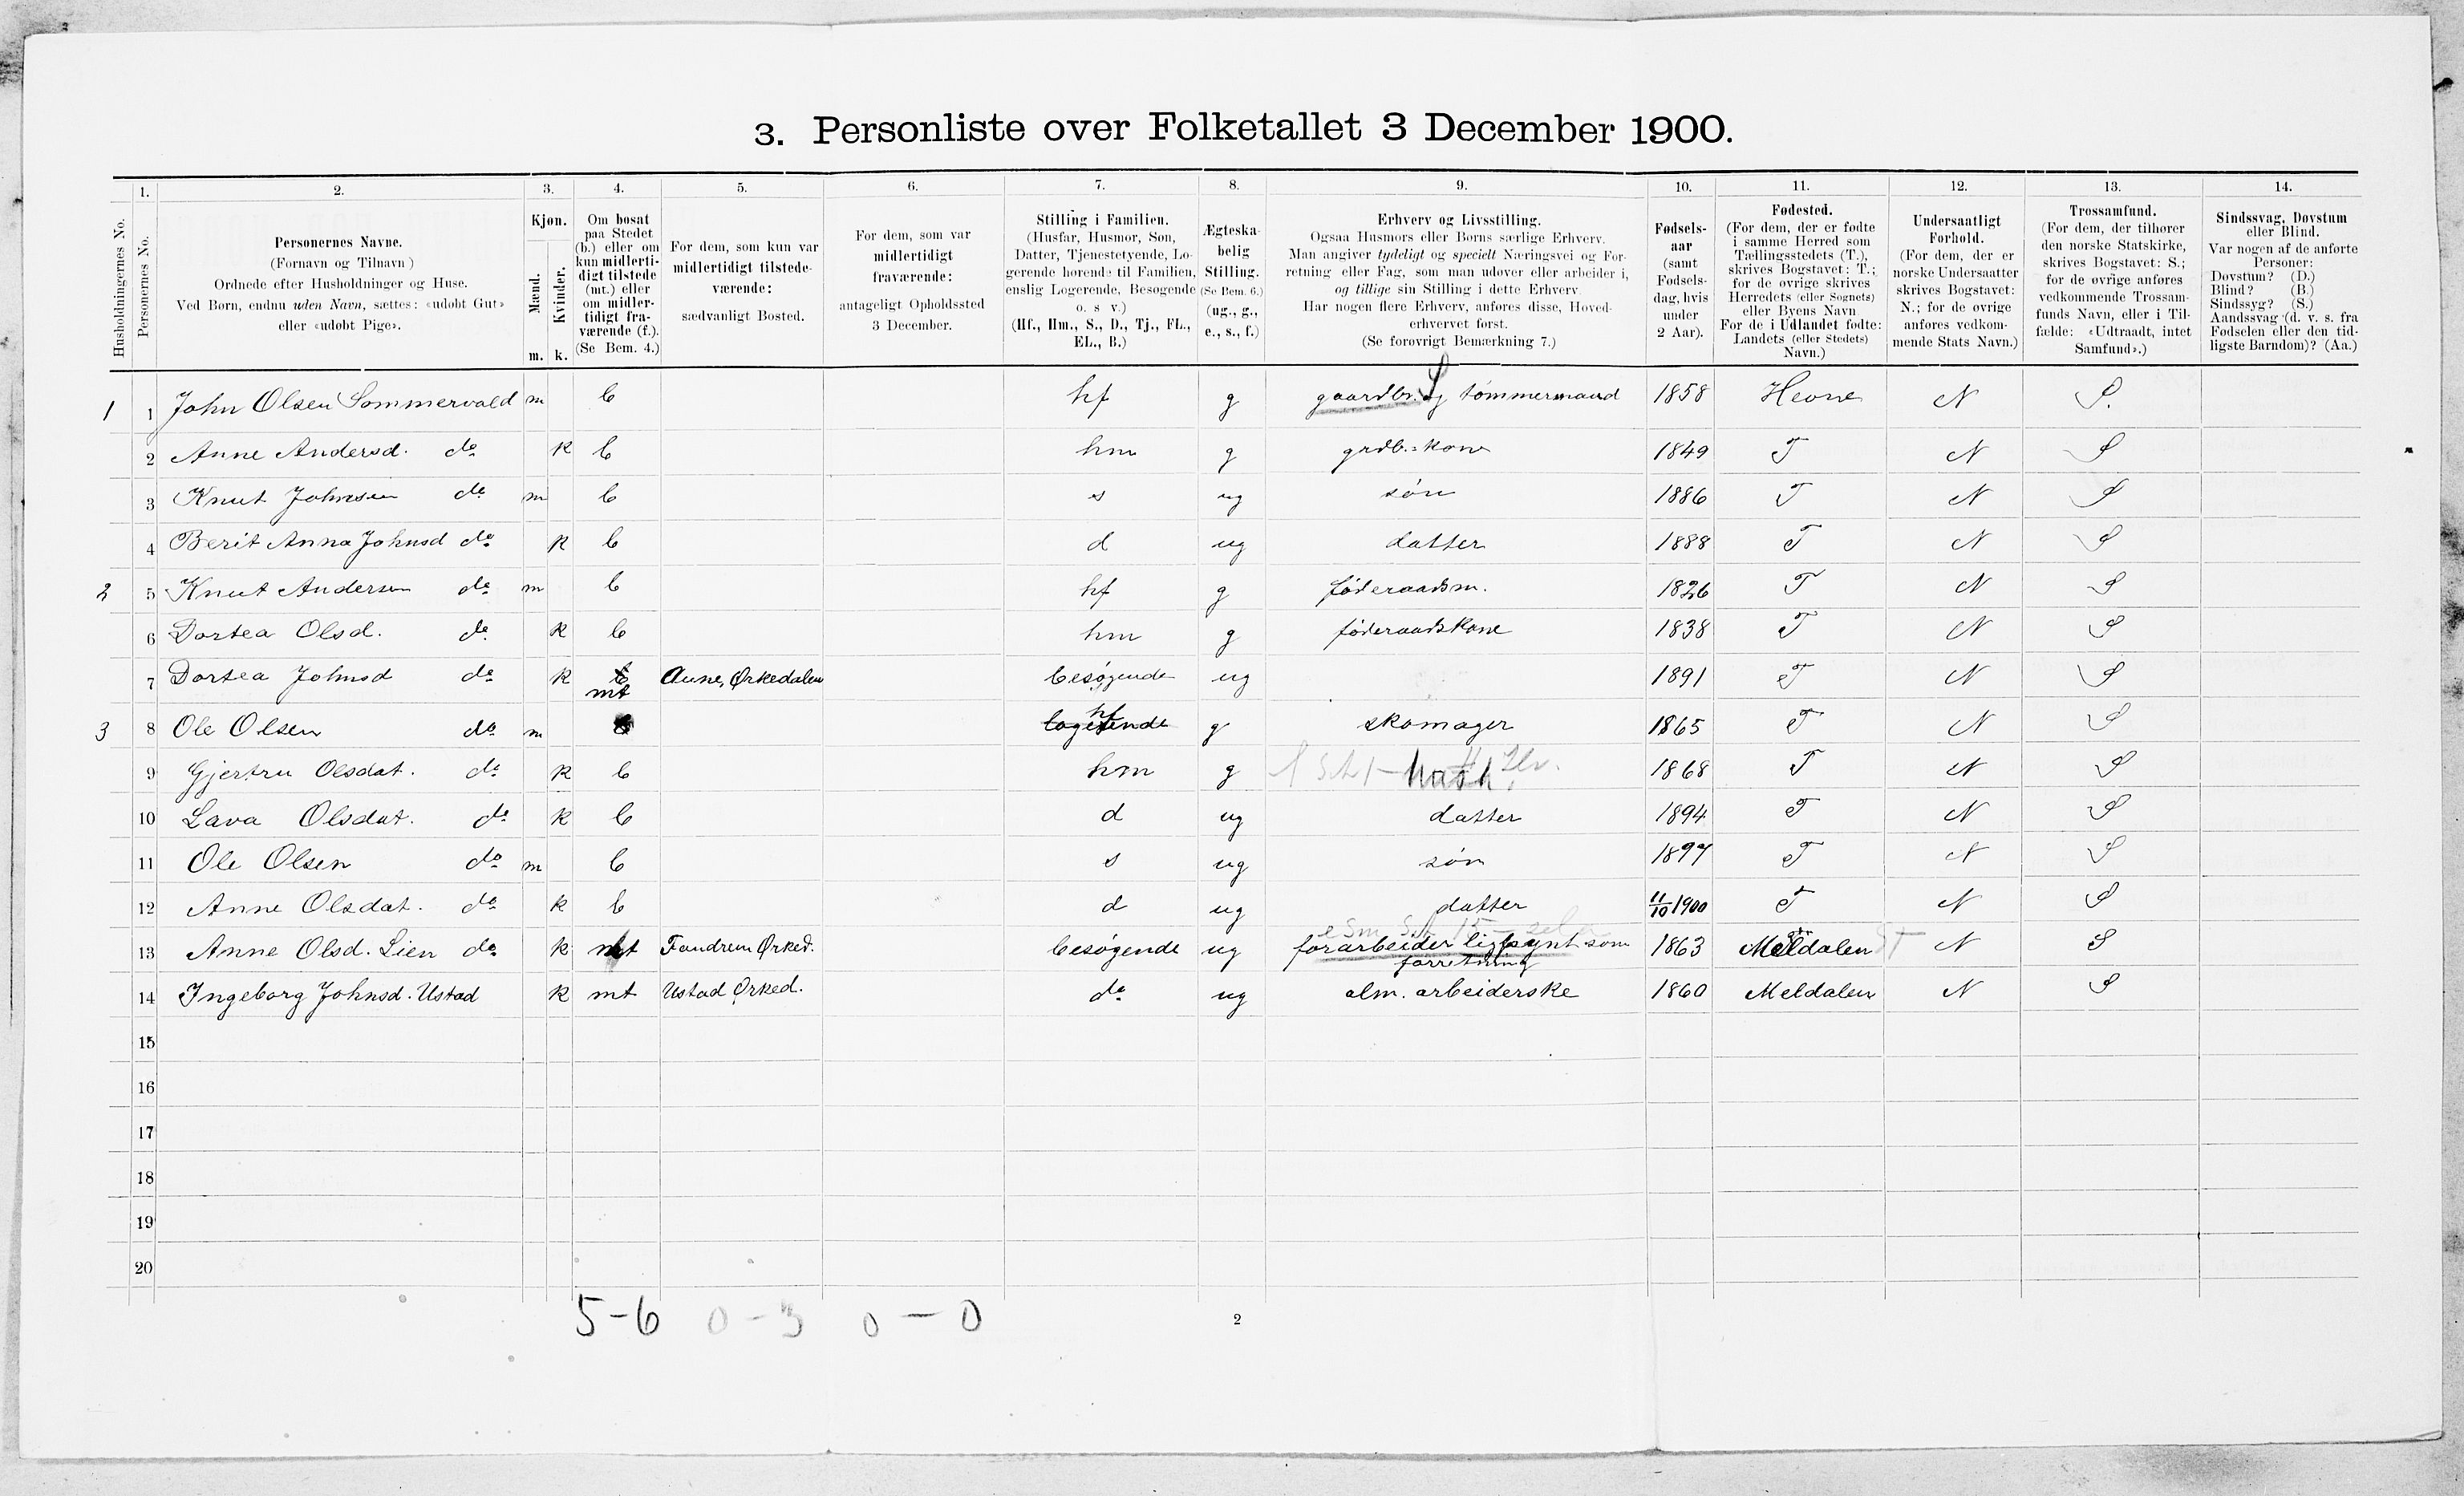 3. Personliste over Folketallet 3 December 1900.
1. 2. 3. 4. 5. 6. 7. 8. 9. 10. 11. 12. 13. 14.
Husholdningernes No.
Personernes No.
Personernes Navne.
(Fornavn og Tilnavn)
Ordnede efter Husholdninger og Huse.
Ved Børn, endnu uden Navn, sættes: «udøbt Gut»
eller «udøbt Pige».
Kjøn.
Mænd.
Kvinder.
m. k.
Om bosat
paa Stedet
(b.) eller om
kun midlerti-
digt tilstede
(mt.) eller
om midler-
tidigt fra-
værende (f.).
(Se Bem. 4.)
For dem, som kun var
midlertidigt tilstede-
værende:
sædvanligt Bosted.
For dem, som var
midlertidigt
fraværende:
antageligt Opholdssted
3 December.
Stilling i Familien.
(Husfar, Husmor, Søn,
Datter, Tjenestetyende, Lo-
gerende hørende til Familien,
enslig Logerende, Besøgende
o. s v.)
(Hf., Hm., S., D., Tj., FL.,
EL., B.)
Ægteska-
belig
Stilling.
(Se Bem. 6.)
(ug., g.,
e., s., f.)
Erhverv og Livsstilling.
Ogsaa Husmors eller Børns særlige Erhverv.
Man angiver tydeligt og specielt Næringsvei og For-
retning eller Fag, som man udøver eller arbeider i,
og tillige sin Stilling i dette Erhverv
Har nogen flere Erhverv, anføres disse, Hoved-
erhvervet først.
(Se forøvrigt Bemærkning 7.)
Fødsels-
aar
(samt
Fødsels-
dag, hvis
under
2 Aar).
Fødested.
(For dem, der er fødte
i samme Herred som
Tællingsstedets (T.),
skrives Bogstavet: T.;
for de øvrige skrives
Herredets (eller Sognets)
eller Byens Navn
For de i Udlandet fødte:
Landets (eller Stedets)
Navn.)
Undersaatligt
Forhold.
(For dem, der er
norske Undersaatter
skrives Bogstavet:
N.; for de øvrige
anføres vedkom-
mende Stats Navn.)
Trossamfund.
(For dem, der tilhører
den norske Statskirke,
skrives Bogstavet: S.;
for de øvrige anføres
vedkommende Trossam-
funds Navn, eller i Til-
fælde: «Udtraadt, intet
Samfund».)
Sindssvag, Døvstum
eller Blind.
Var nogen af de anførte
Personer:
Døvstum? (D.)
Blind? (B.)
Sindssyg? (S.)
Aandssvag (d. v. s. fra
Fødselen eller den tid-
ligste Barndom)? (Aa.)
1 1 John Olsen Sommervold m b hf g gaardbr. S tømmermand 1858 Hevne N S.
2 Anne Andersd. do k b hm g grdb.:kone 1849 T N S
3 Knut Johnsen do m b s ug søn 1886 T N S
4 Berit Anna Johnsd do k b d ug datter 1888 T N S
2 5 Knut Andersen do m b hf g føderaadsm. 1826 T N S
6 Dortea Olsd. do k b hm g føderaadskone 1838 T N S
7 Dortea Johnsd do k b mt Aune, Ørkedalen besøgende ug 1891 T N S
3 8 Ole Olsen do m b logerende hf g skomager 1865 T N S
9 Gjertru Olsdat. do k b hm g 1868 T N S
10 Lava Olsdat. do k b d ug datter 1894 T N S
11 Ole Olsen do m b s ug søn 1897 T N S
12 Anne Olsdat. do k b d ug datter 11/10 1900 T N S
13 Anne Olsd. Lien do k mt Fandrem Ørked. besøgende ug forarbeider ligtøynt som forretning 1863 Meldalen N S
14 Ingeborg Johnsd. Ustad k mt Ustad Ørked. do ug alm. arbeiderske 1860 Meldalen N S
15
16
17
18
19
20
5-6 0-3 0-0
2